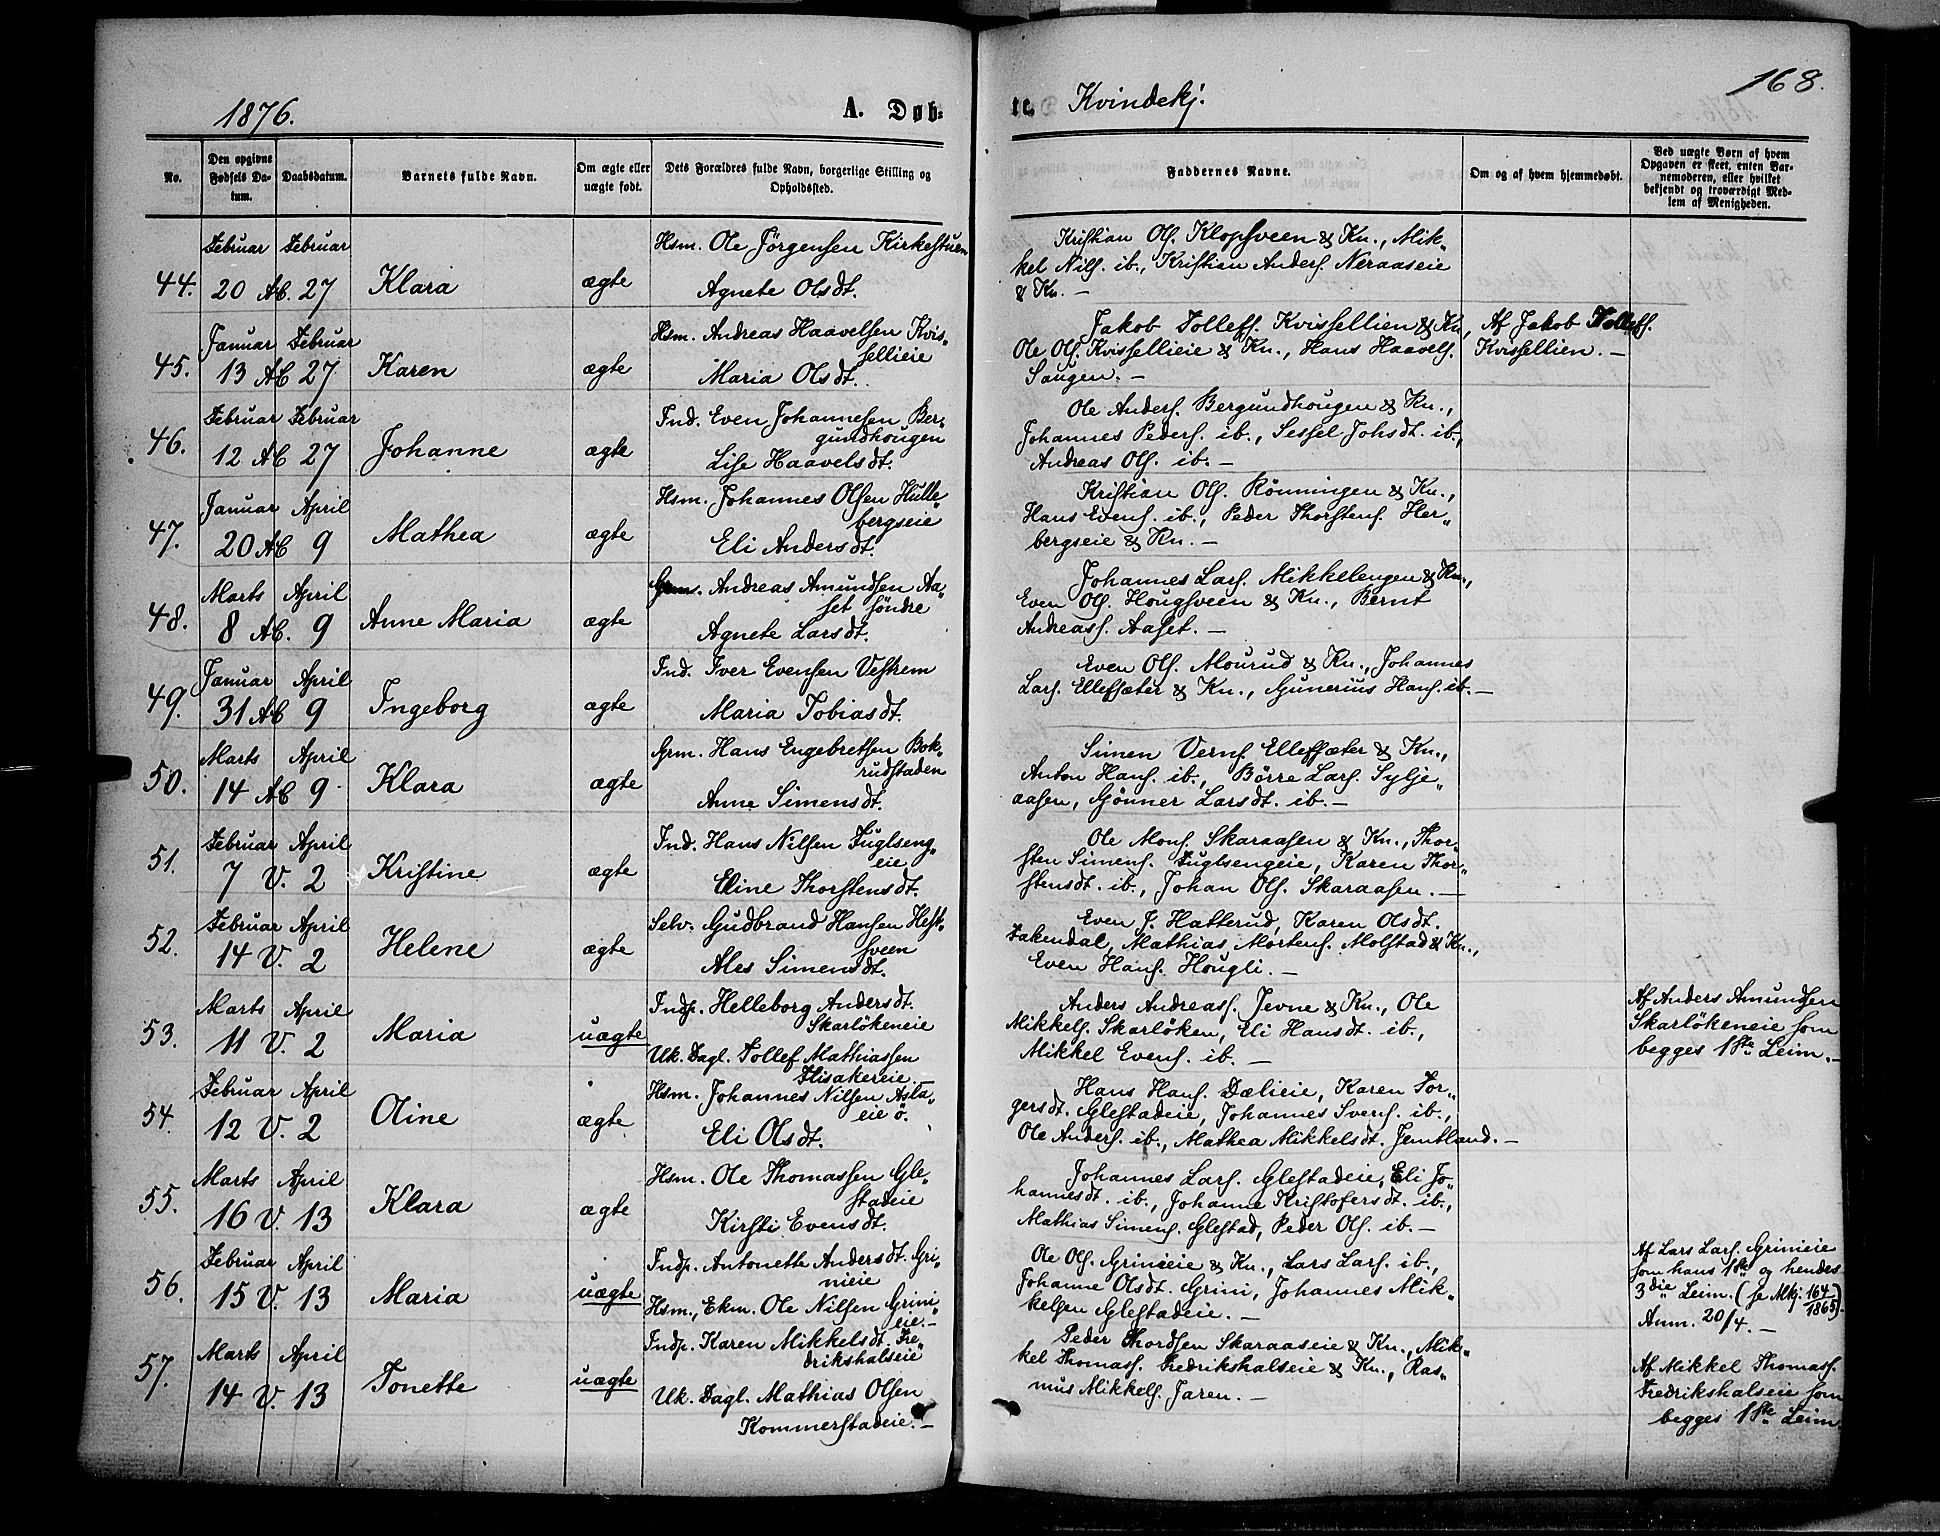 1876.
A. Døb-
te. Kvindekj.
168.
No.
Den opgivne Fødsels Datum.
Daabsdatum.
Barnets fulde Navn.
Om ægte eller uægte født.
Dets Forældres fulde Navn, borgerlige Stilling og Opholdssted.
Faddernes Navne.
Om og af hvem hjemmedøbt.
Ved uægte Børn af hvem Opgaven er skeet, enten Barnemoderen, eller hvilket bekjendt og troværdigt Medlem af Menigheden.
44. Februar 20 Ab. Februar 27 Klara ægte
Hsm. Ole Jörgensen Kirkestuen
Agnete Olsdt.
Kristian Ols. Klopsveen & Kn., Mik-
kel Nils. ib., Kristian Anders. Neraaseie
& Kn. —
45. Januar 13 Ab Februar 27 Karen ægte
Hsm. Andreas Haavelsen Kvis-
sellieie
Maria Olsdt.
Jakob Tollefs. Kvissellien & Kn,
Ole Ols. Kvissellieie & Kn., Hans Haavels.
Saugen. —
Af Jakob Tollefs.
Kvissellien. —
46. Februar 12 Ab Februar 27 Johanne ægte
Ind. Even Johannesen Ber-
gundhougen
Lise Haavelsdt.
Ole Anders. Bergundhougen & Kn.,
Johannes Peders. ib., Sessel Johsdt. ib.,
Andreas Ols. ib. —
47. Januar 20 Ab April 9 Mathea ægte
Hsm. Johannes Olsen Hulle-
bergseie
Eli Andersdt.
Kristian Ols. Rönningen & Kn.,
Hans Evens. ib., Peder Thorstens. Her-
bergseie & Kn. —
48. Marts 8 Ab. April 9 Anne Maria ægte
Grm. Andreas Amundsen Aa-
set söndre
Agnete Larsdt.
Johannes Lars. Mikkelengen & Kn.,
Even Ols. Hougsveen & Kn., Bernt
Andreass. Aaset. —
49. Januar 31 Ab April 9 Ingeborg ægte
Ind. Iver Evensen Veskrem
Maria Tobiasdt.
Even Ols. Mourud & Kn., Johannes
Lars. Ellefsæter & Kn., Gunerius Hans. ib. —
50. Marts 14 Ab April 9 Klara ægte
Grm. Hans Engebretsen Bok-
rudstaden
Anne Simensdt.
Simen Verns. Ellefsæter & Kn.,
Anton Hans. ib., Börre Lars. Sylje-
aasen, Gönner Larsdt. ib. —
51. Februar 7 V. April 2 Kristine ægte
Ind. Hans Nilsen Fuglseng-
eie
Eline Thorstensdt.
Ole Mons. Skaraasen & Kn., Thor-
sten Simens. Fuglsengeie, Karen Thor-
stensdt. ib., Johan Ols. Skaraasen. —
52. Februar 14 V. April 2 Helene ægte
Selv. Gudbrand Hansen Hest-
sveen
Ales Simensdt.
Even J. Hatterud, Karen Olsdt.
Fakendal, Mathias Mortens. Molstad & Kn.,
Even Hans. Hougli. —
53. Marts 11 V. April 2 Maria uægte
Indp. Helleborg Andersdt.
Skarlökeneie
Uk. Dagl. Tollef Mathiassen
Flisakereie.
Anders Andreass. Jevne & Kn., Ole
Mikkels. Skarlöken, Eli Hansdt. ib.,
Mikkel Evens. ib. —
Af Anders Amundsen
Skarlökeneie som
begges 1ste Leim. —
54. Februar 12 V. April 2 Oline ægte
Hsm. Johannes Nilsen Asla-
eie ö.
Eli Olsdt.
Hans Hans. Dælieie, Karen Tor-
gersdt. Glestadeie, Johannes Svens. ib.,
Ole Anders. ib., Mathea Mikkelsdt. Jemtland. —
55. Marts 16 V. April 13 Klara ægte
Hsm. Ole Thomassen Gle-
stadeie
Kirsti Evensdt.
Johannes Lars. Glestadeie, Eli Jo-
hannesdt. ib., Johanne Kristofersdt. ib.,
Mathias Simens. Glestad, Peder Ols. ib. —
56. Februar 15 V. April 13 Maria uægte
Indp. Antonette Andersdt. Gri-
nieie
Hsm., Ekm. Ole Nilsen Grini-
eie. —
Ole Ols. Grinieie & Kn., Lars Lars. ib.,
Johanne Olsdt. Grini, Johannes Mik-
kelsen Glestadeie. —
Af Lars Lars. Grinieie
som hans 1ste og hendes
3die Leim. (se Mkj. 164/1865).
Anm. 20/4. —
57. Marts 14 V. April 13 Tonette uægte
Indp. Karen Mikkelsdt. Fre-
drikshalseie
Uk. Dagl. Mathias Olsen
Kommerstadeie. —
Peder Thordsen Skaraaseie & Kn., Mik-
kel Thomass. Fredrikshalseie & Kn., Ras-
mus Mikkels. Jaren. —
Af Mikkel Thomass.
Fredrikshalseie som
begges 1ste Leim.